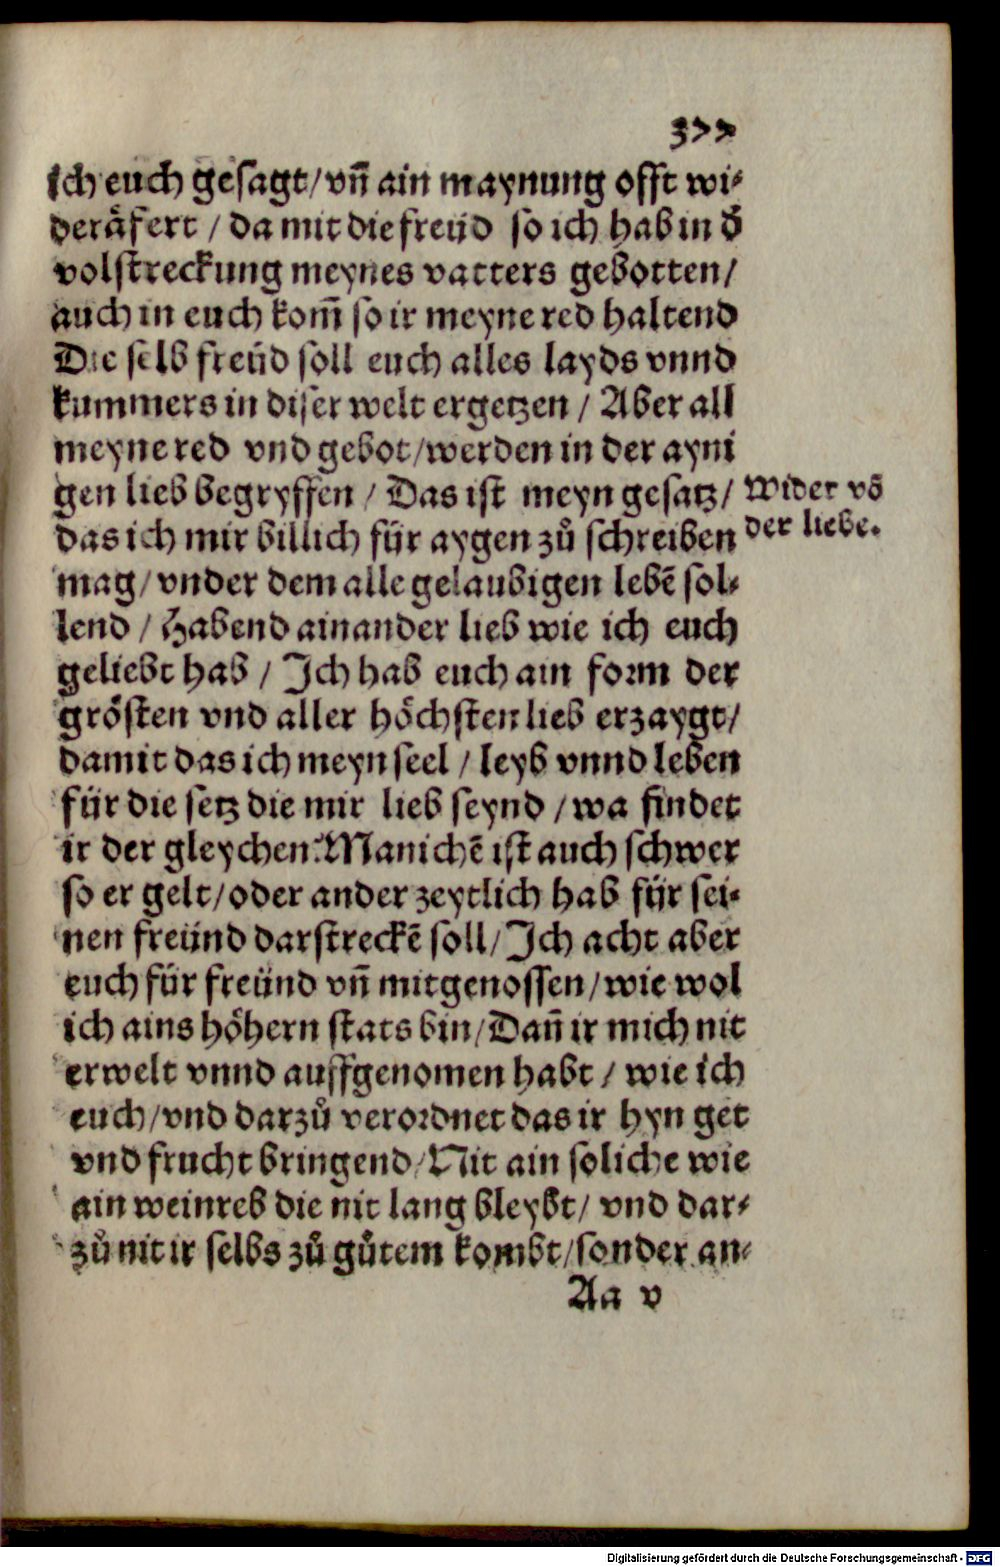 377
ich euch gesagt/ vñ ain maynung offt wi-
deräfert / da mit die freüd so ich hab in ð
volstreckung meynes vatters gebotten/
auch in euch kom̃ so ir meyne red haltend
Die selb freüd soll euch alles layds vnnd
kummers in diser welt ergetzen / Aber all
meyne red vnd gebot/werden in der ayni
gen lieb begryffen / Das ist meyn gesatz/
Wider võ
das ich mir billich für aygen zů schreiben
der liebe.
mag/ vnder dem alle gelaubigen lebẽ sol-
lend / Habend ainander lieb wie ich euch
geliebt hab / Ich hab euch ain form der
grösten vnd aller höchsten lieb erzaygt/
damit das ich meyn seel / leyb vnnd leben
für die setz die mir lieb seynd / wa findet
ir der gleychen: Manichẽ ist auch schwer
so er gelt/oder ander zeytlich hab für sei-
nen freünd darstreckẽ soll/ Ich acht aber
euch für freünd vñ mitgenossen/wie wol
ich ains höhern stats bin/ Dañ ir mich nit
erwelt vnnd auffgenomen habt / wie ich
euch/vnd darzů verordnet das ir hyn get
vnd frucht bringend/ Nit ain soliche wie
ain weinreb die nit lang bleybt/ vnd dar-
zů nit ir selbs zů gůtem kombt/sonder an-
Aa v
Digitalisierung gefördert durch die Deutsche Forschungsgemeinschaft - DFG